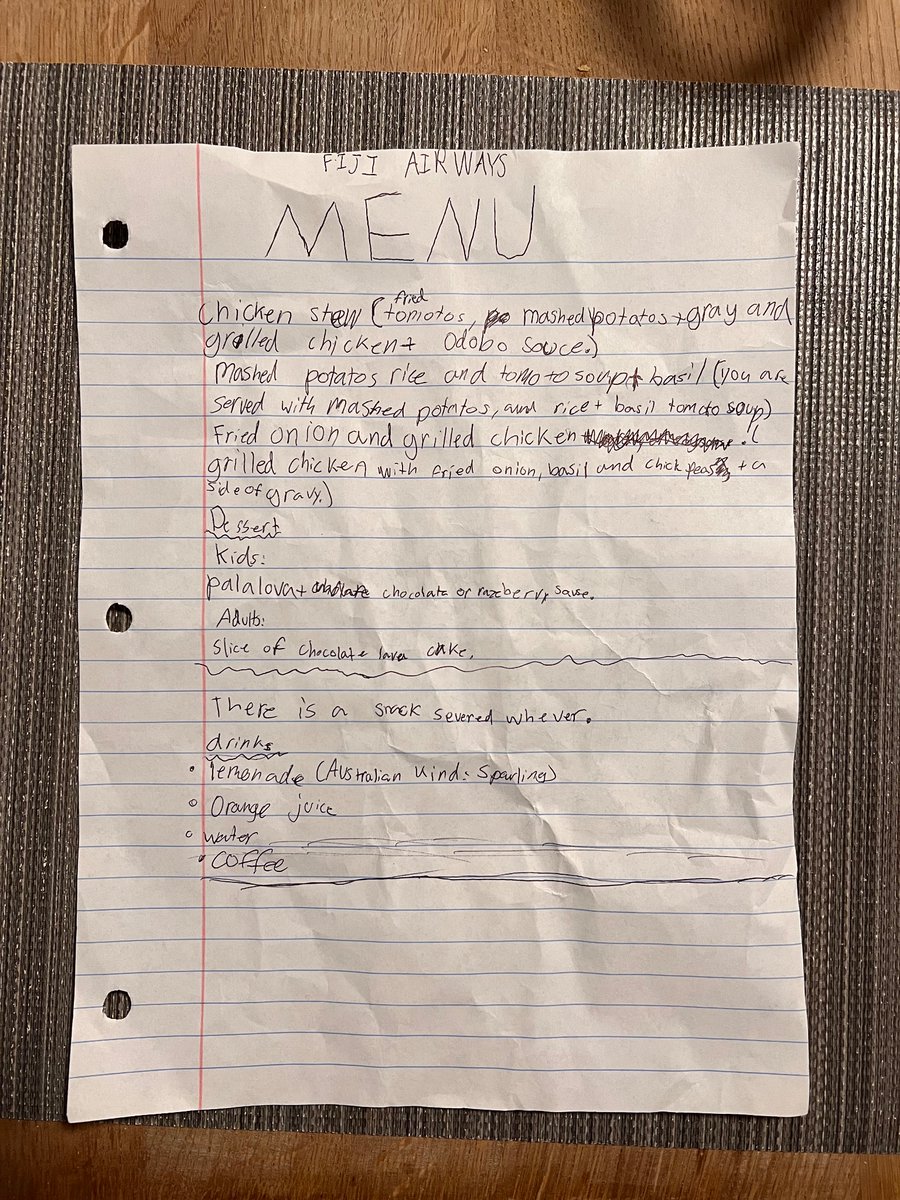 FIJI AIRWAYS
MENU
Chicken stew (fried tomotos, mashed potatos + gray and
grilled chicken + Odobo souce.)
Mashed potatos rice and tomoto soup + basil (you are
served with mashed potatos, and rice + basil tomato soup)
Fried onion and grilled chicken . (
grilled chicken with fried onion, basil and chick peas, + a
side of gravy.)
Dessert
Kids:
Palalova + chocolate or razeberry sause.
Adults:
Slice of chocolate lava cake.
There is a snack severed whever.
drinks
• lemonade (Australian kind: Sparling)
• Orange juice
• water
• coffee